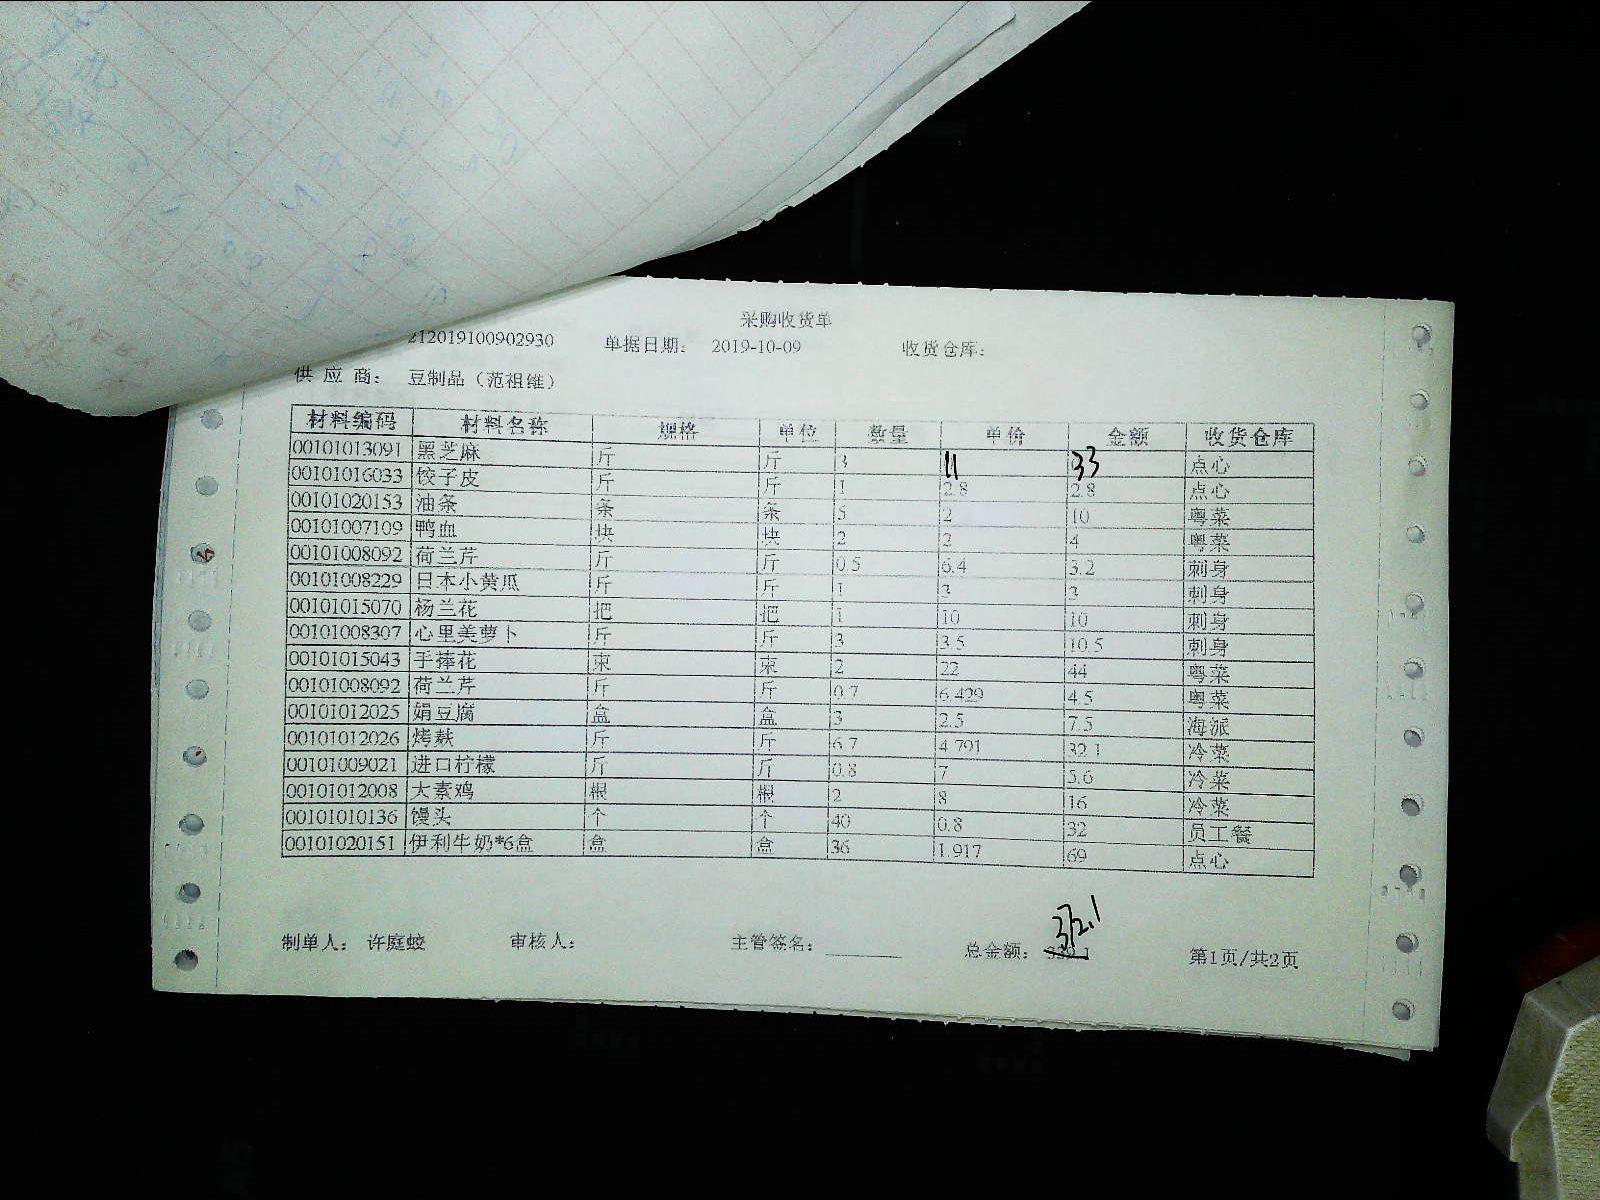 采购收货单
212019100902930 单据日期: 2019-10-09 收货仓库:
供 应 商: 豆制品（范祖维）
材料编码 材料名称 规格 单位 数量 单价 金额 收货仓库
00101013091 黑芝麻 斤 斤 3 11 33 点心
00101016033 饺子皮 斤 斤 1 2.8 2.8 点心
00101020153 油条 条 条 5 2 10 粤菜
00101007109 鸭血 块 块 2 2 4 粤菜
00101008092 荷兰芹 斤 斤 0.5 6.4 3.2 刺身
00101008229 日本小黄瓜 斤 斤 1 3 3 刺身
00101015070 杨兰花 把 把 1 10 10 刺身
00101008307 心里美萝卜 斤 斤 3 3.5 10.5 刺身
00101015043 手捧花 束 束 2 22 44 粤菜
00101008092 荷兰芹 斤 斤 0.7 6.429 4.5 粤菜
00101012025 娟豆腐 盒 盒 3 2.5 7.5 海派
00101012026 烤麸 斤 斤 6.7 4.791 32.1 冷菜
00101009021 进口柠檬 斤 斤 0.8 7 5.6 冷菜
00101012008 大素鸡 根 根 2 8 16 冷菜
00101010136 馒头 个 个 40 0.8 32 员工餐
00101020151 伊利牛奶*6盒 盒 盒 36 1.917 69 点心
制单人: 许庭蛟 审核人: 主管签名: 总金额: 372.1 第1页/共2页